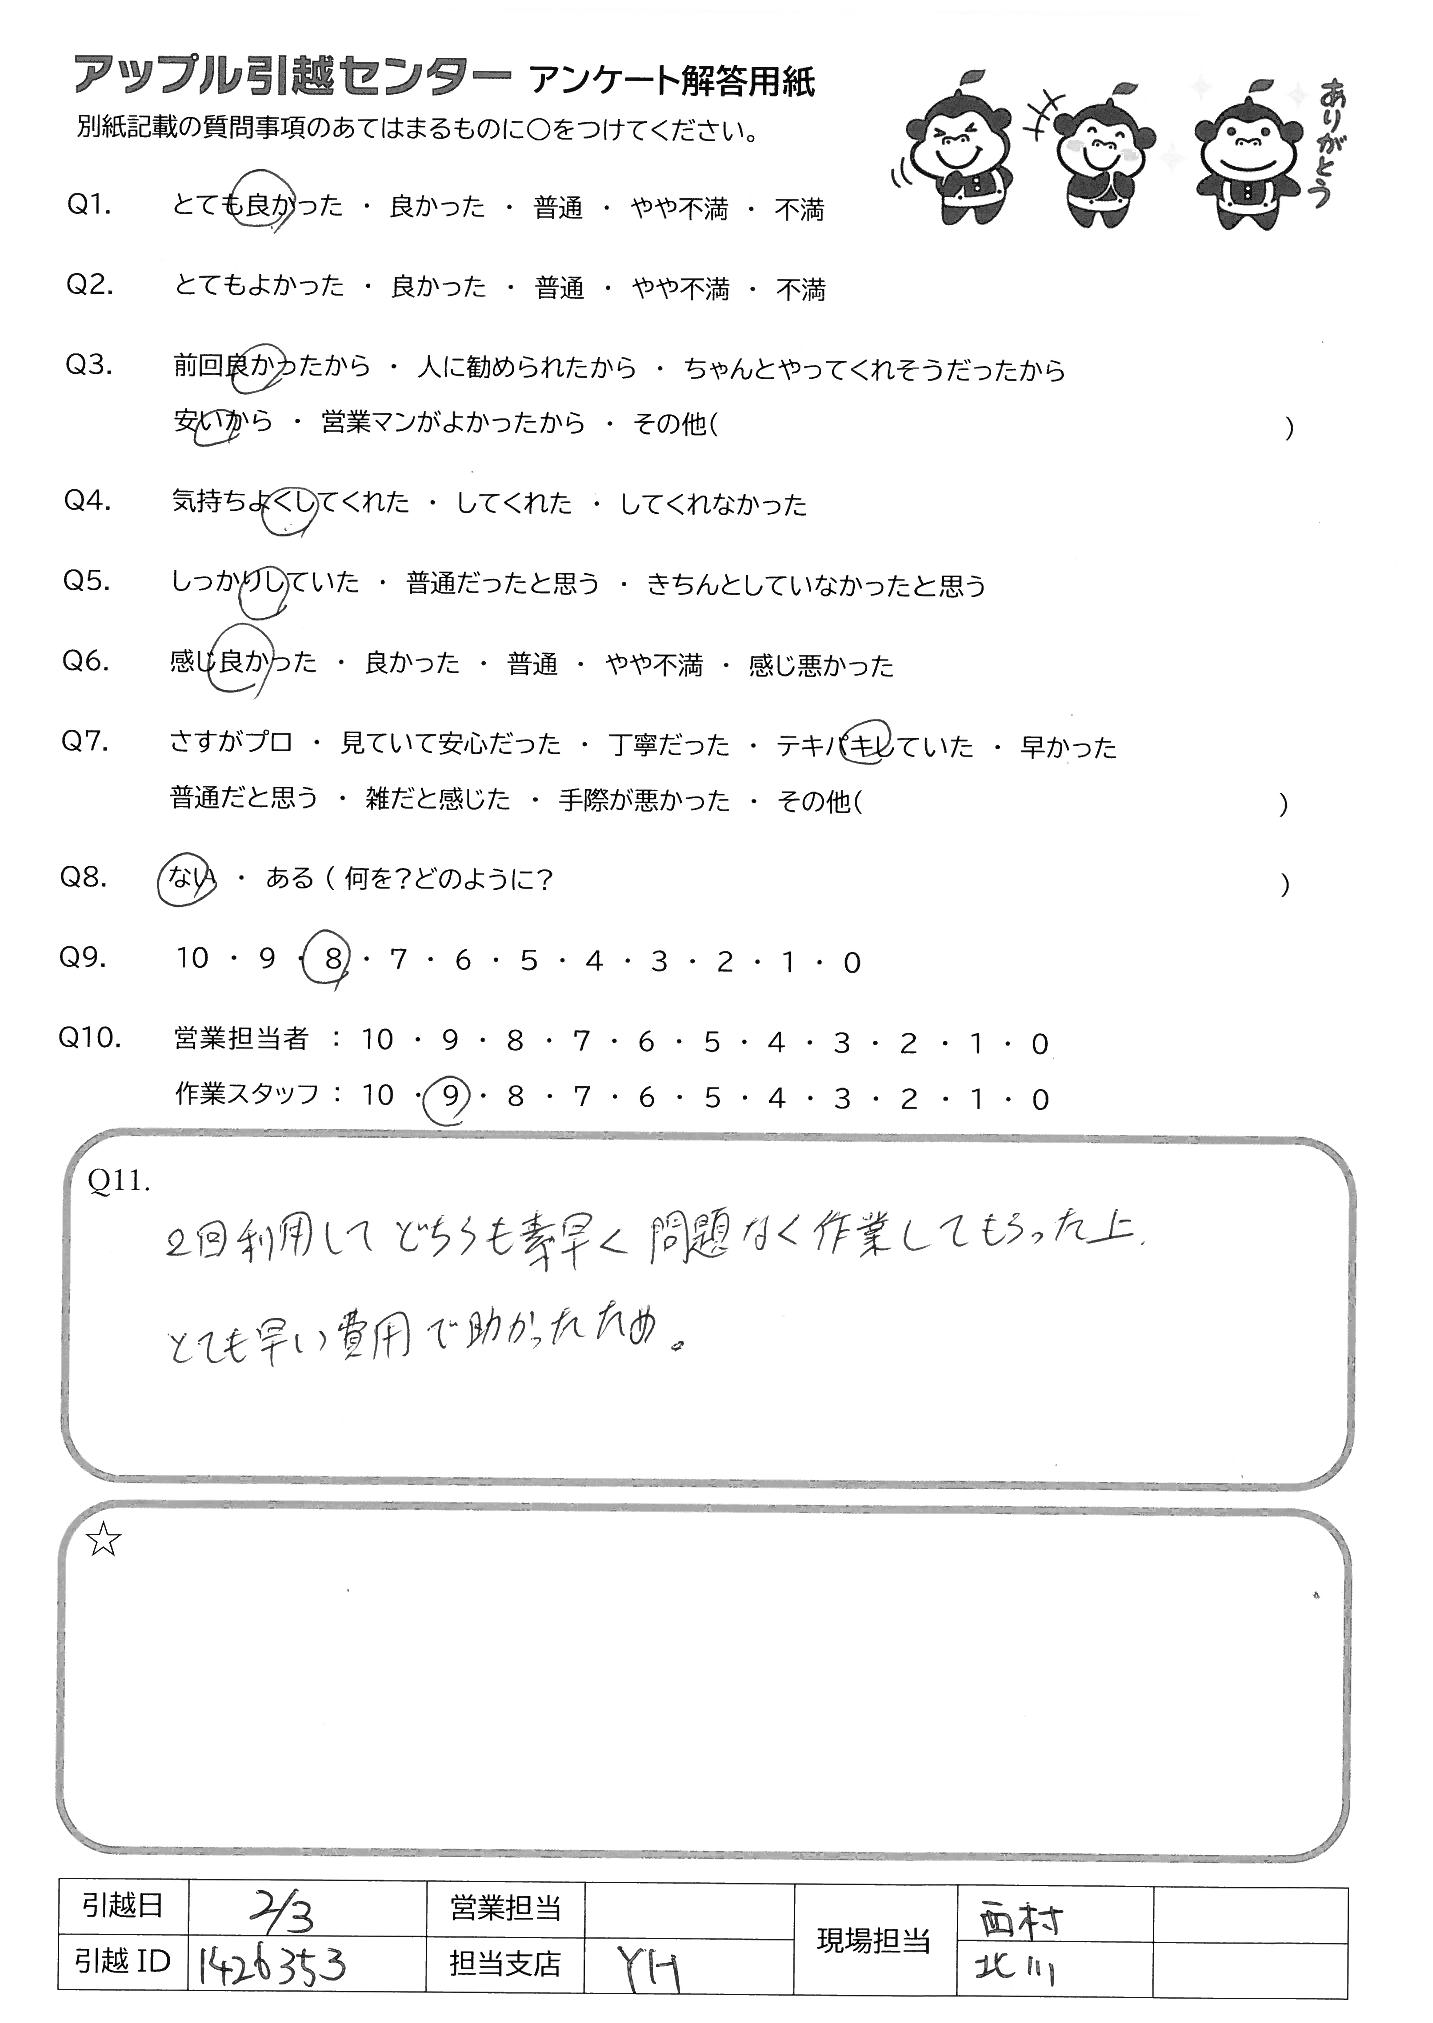 アップル引越センター アンケート解答用紙
別紙記載の質問事項のあてはまるものに○をつけてください。
ありがとう
Q1. とても良かった ・ 良かった ・ 普通 ・ やや不満 ・ 不満
Q2. とてもよかった ・ 良かった ・ 普通 ・ やや不満 ・ 不満
Q3. 前回良かったから ・ 人に勧められたから ・ ちゃんとやってくれそうだったから
安いから ・ 営業マンがよかったから ・ その他( )
Q4. 気持ちよくしてくれた ・ してくれた ・ してくれなかった
Q5. しっかりしていた ・ 普通だったと思う ・ きちんとしていなかったと思う
Q6. 感じ良かった ・ 良かった ・ 普通 ・ やや不満 ・ 感じ悪かった
Q7. さすがプロ ・ 見ていて安心だった ・ 丁寧だった ・ テキパキしていた ・ 早かった
普通だと思う ・ 雑だと感じた ・ 手際が悪かった ・ その他( )
Q8. ない ・ ある ( 何を？どのように？ )
Q9. 10 ・ 9 ・ 8 ・ 7 ・ 6 ・ 5 ・ 4 ・ 3 ・ 2 ・ 1 ・ 0
Q10. 営業担当者 ： 10 ・ 9 ・ 8 ・ 7 ・ 6 ・ 5 ・ 4 ・ 3 ・ 2 ・ 1 ・ 0
作業スタッフ ： 10 ・ 9 ・ 8 ・ 7 ・ 6 ・ 5 ・ 4 ・ 3 ・ 2 ・ 1 ・ 0
Q11.
2回利用してどちらも素早く問題なく作業してもらった上、
とても早い費用で助かったため。
☆
引越日 2/3 営業担当 現場担当 西村
引越ID 1426353 担当支店 YH 北川